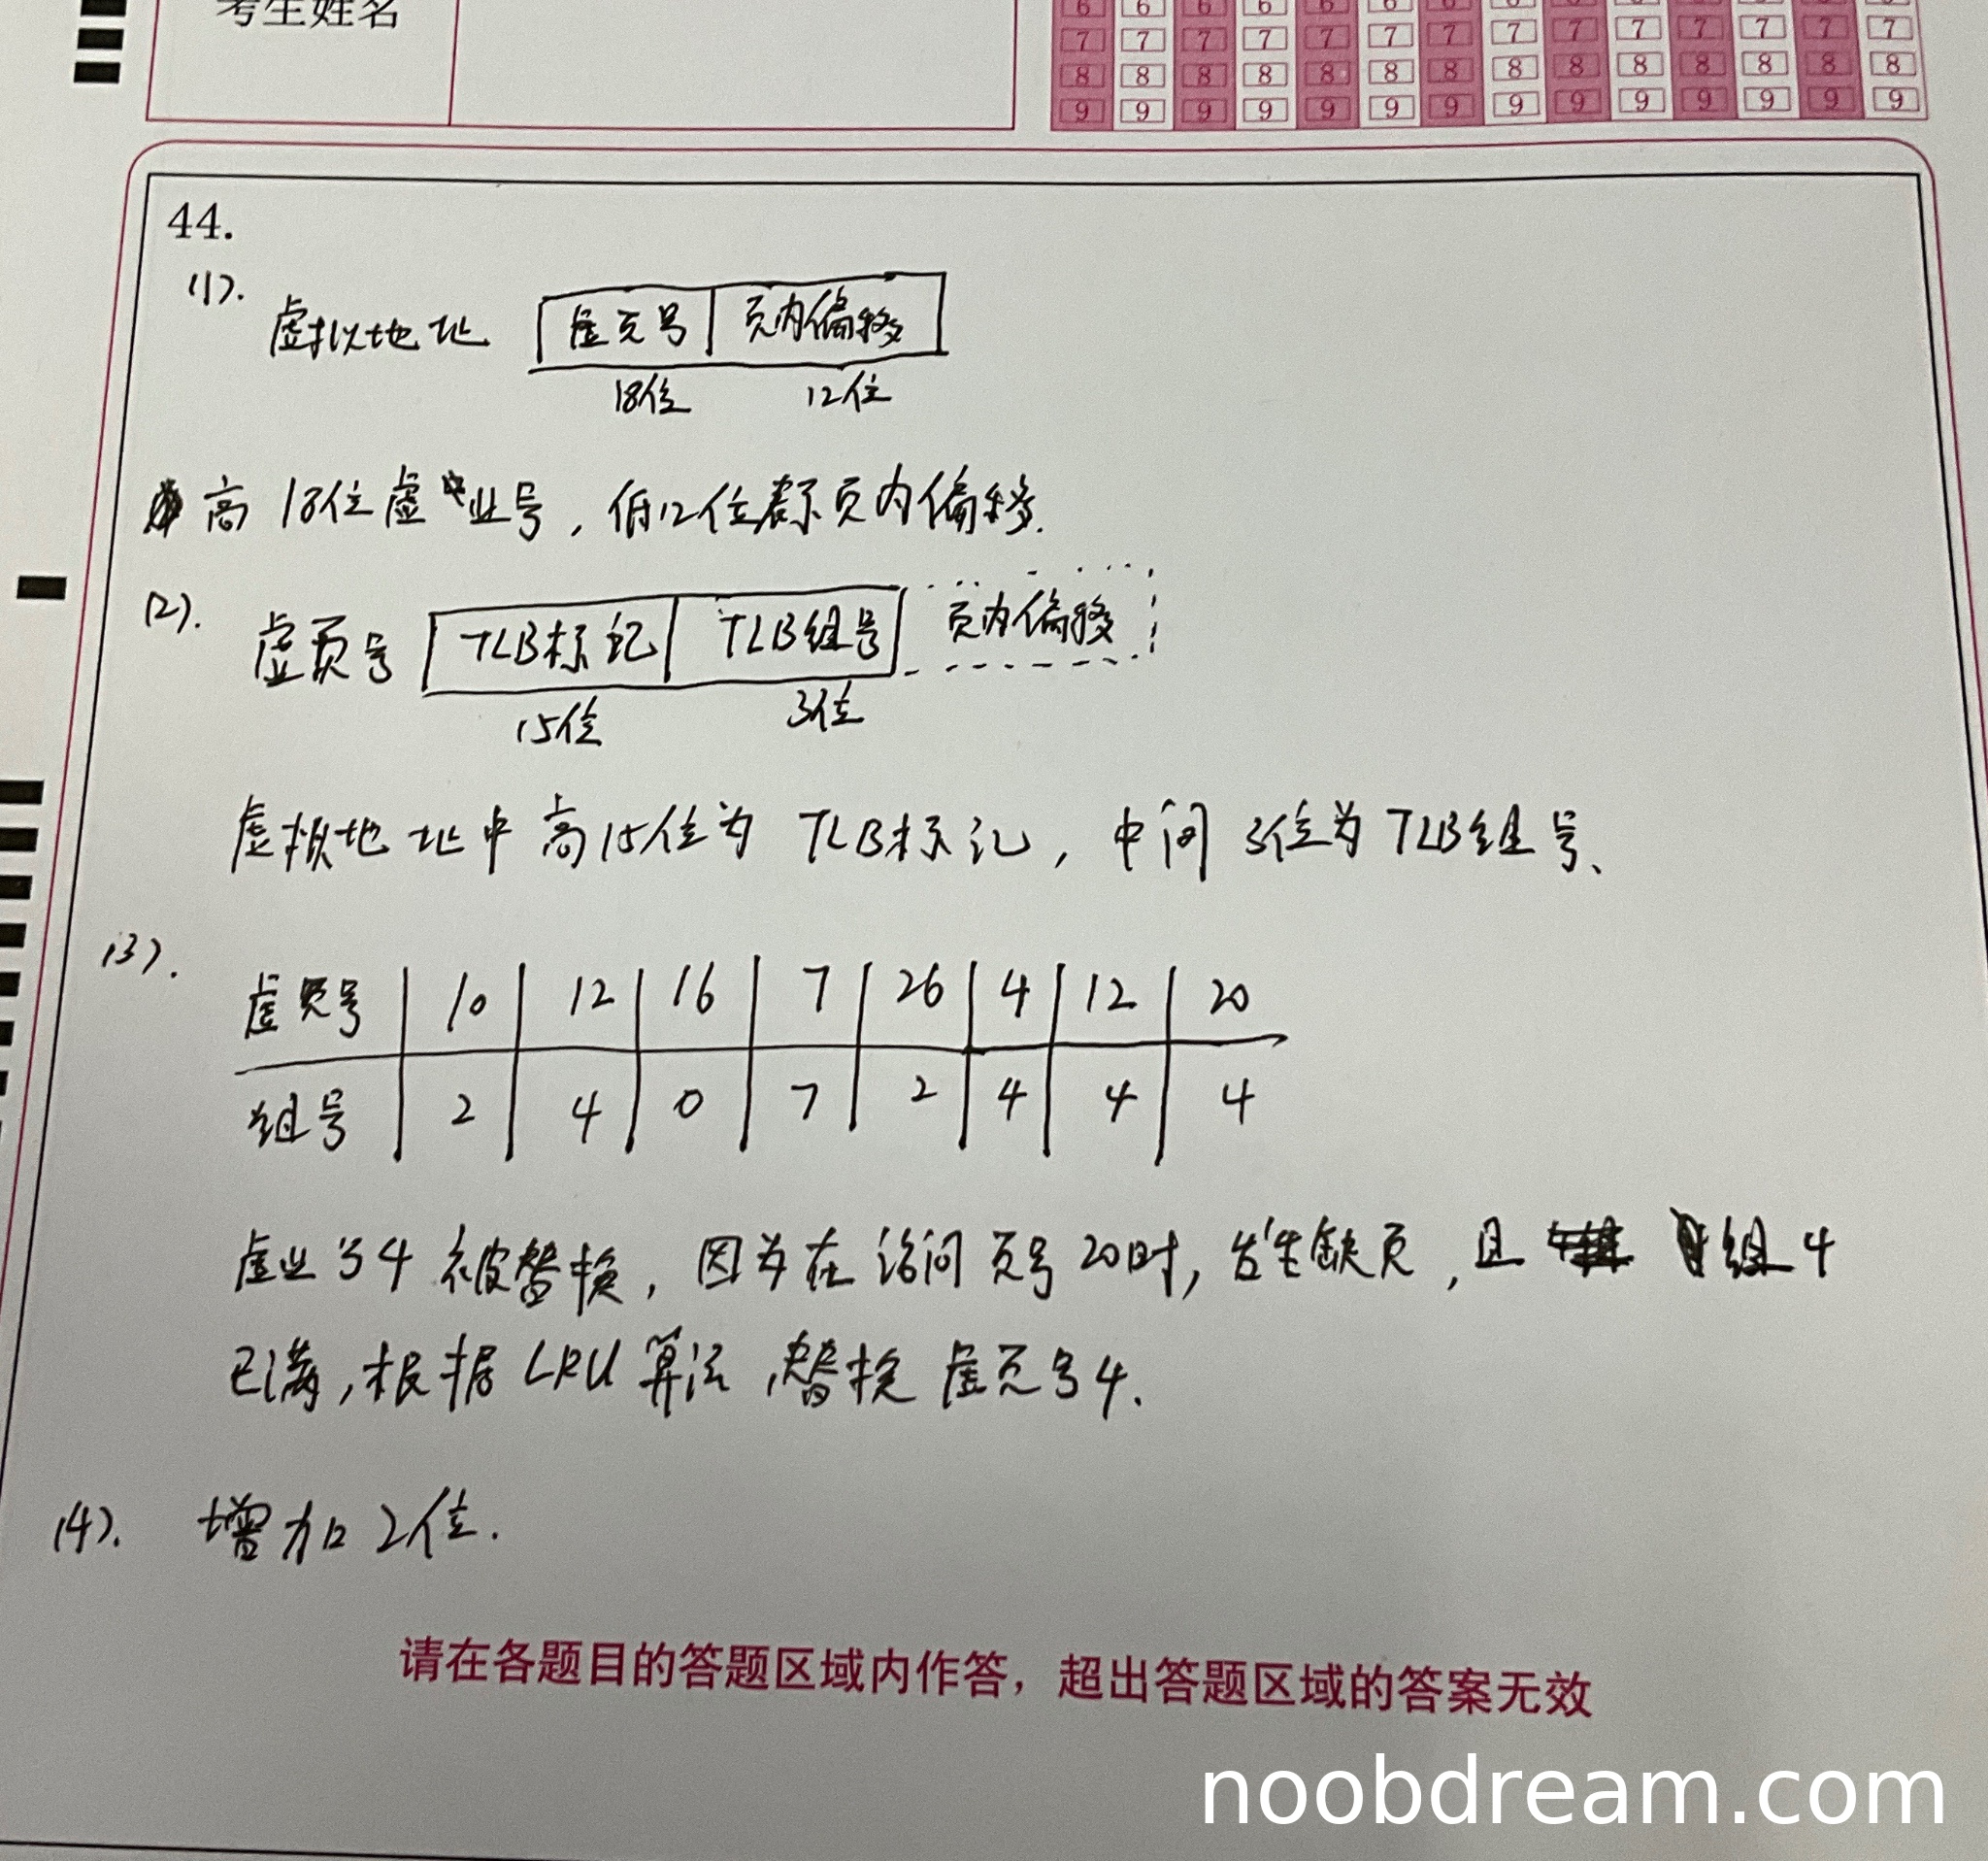 考生姓名
6 6 6 6 6 6 6 6 6 6 6 6 6 6
7 7 7 7 7 7 7 7 7 7 7 7 7 7
8 8 8 8 8 8 8 8 8 8 8 8 8 8
9 9 9 9 9 9 9 9 9 9 9 9 9 9
44.
(1). 虚拟地址 虚页号 页内偏移
18位 12位
高18位虚页号, 低12位表示页内偏移.
(2). 虚页号 TLB标记 TLB组号 页内偏移
15位 3位
虚拟地址中高15位为TLB标记, 中间3位为TLB组号、
(3). 虚页号 10 12 16 7 26 4 12 20
组号 2 4 0 7 2 4 4 4
虚页号4被替换, 因为在访问页号20时, 发生缺页, 且组4
已满, 根据LRU算法, 替换虚页号4.
(4). 增加2位.
请在各题目的答题区域内作答，超出答题区域的答案无效
noobdream.com